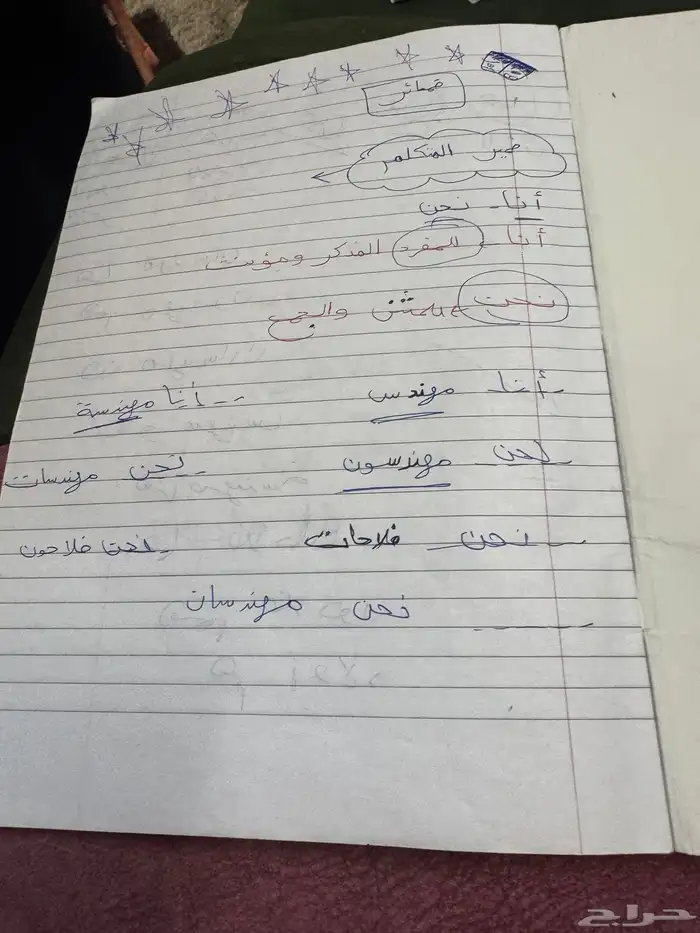 ضمائر
ضمير المتكلم
أنا - نحن
أنا للمفرد المذكر ومؤنث
نحن للمثنى والجمع
- أنا مهندس -- أنا مهندسة
نحن مهندسون - نحن مهندسات
- نحن فلاحات - نحن فلاحون
نحن مهندسان
حراج